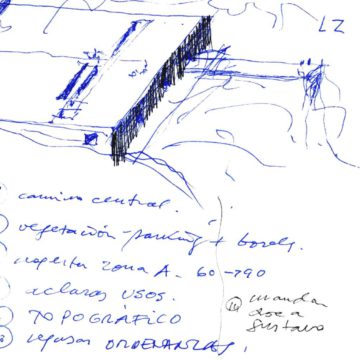 LZ
camino central.
vegetación - parking + bordes.
zona A - 60-790
aclarar usos.
TOPOGRAFICO
repasar ORDENANZAS.
mandar
doc a
Gustavo